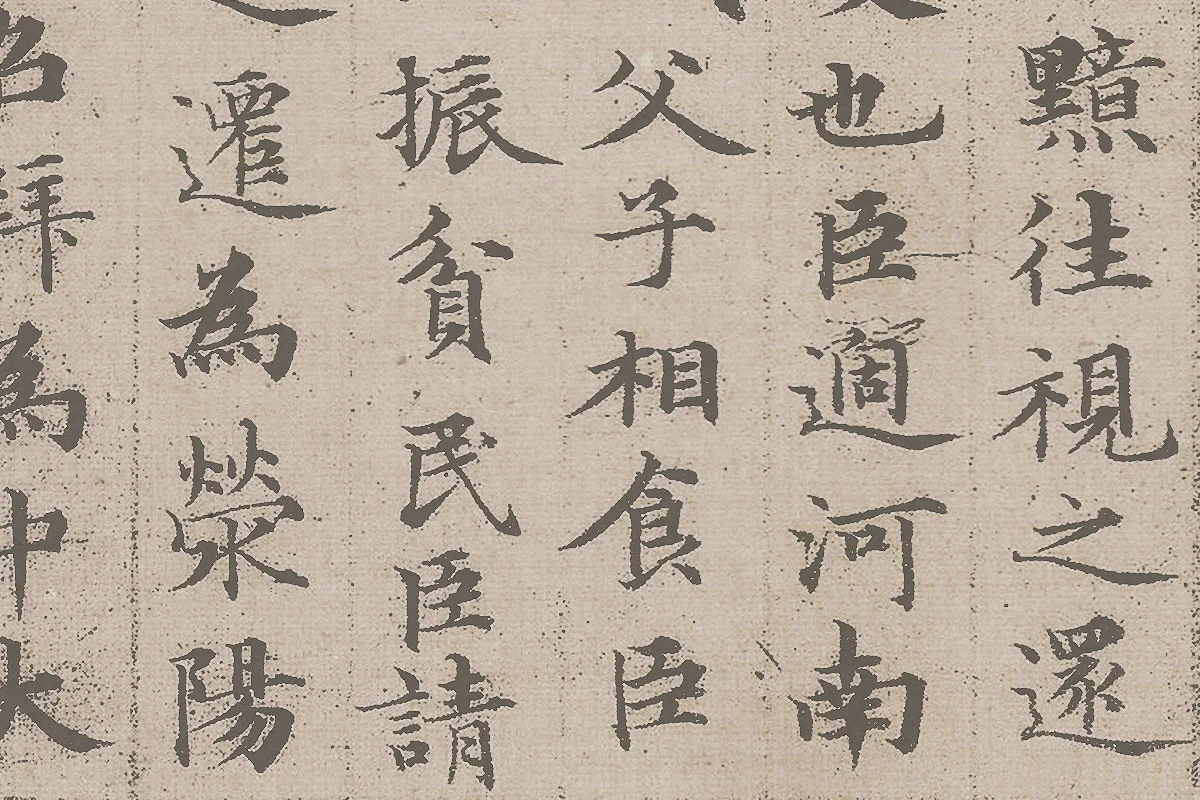 黯往視之還
也臣適河南
父子相食臣
振貧民臣請
遷為滎陽
召拜為中大